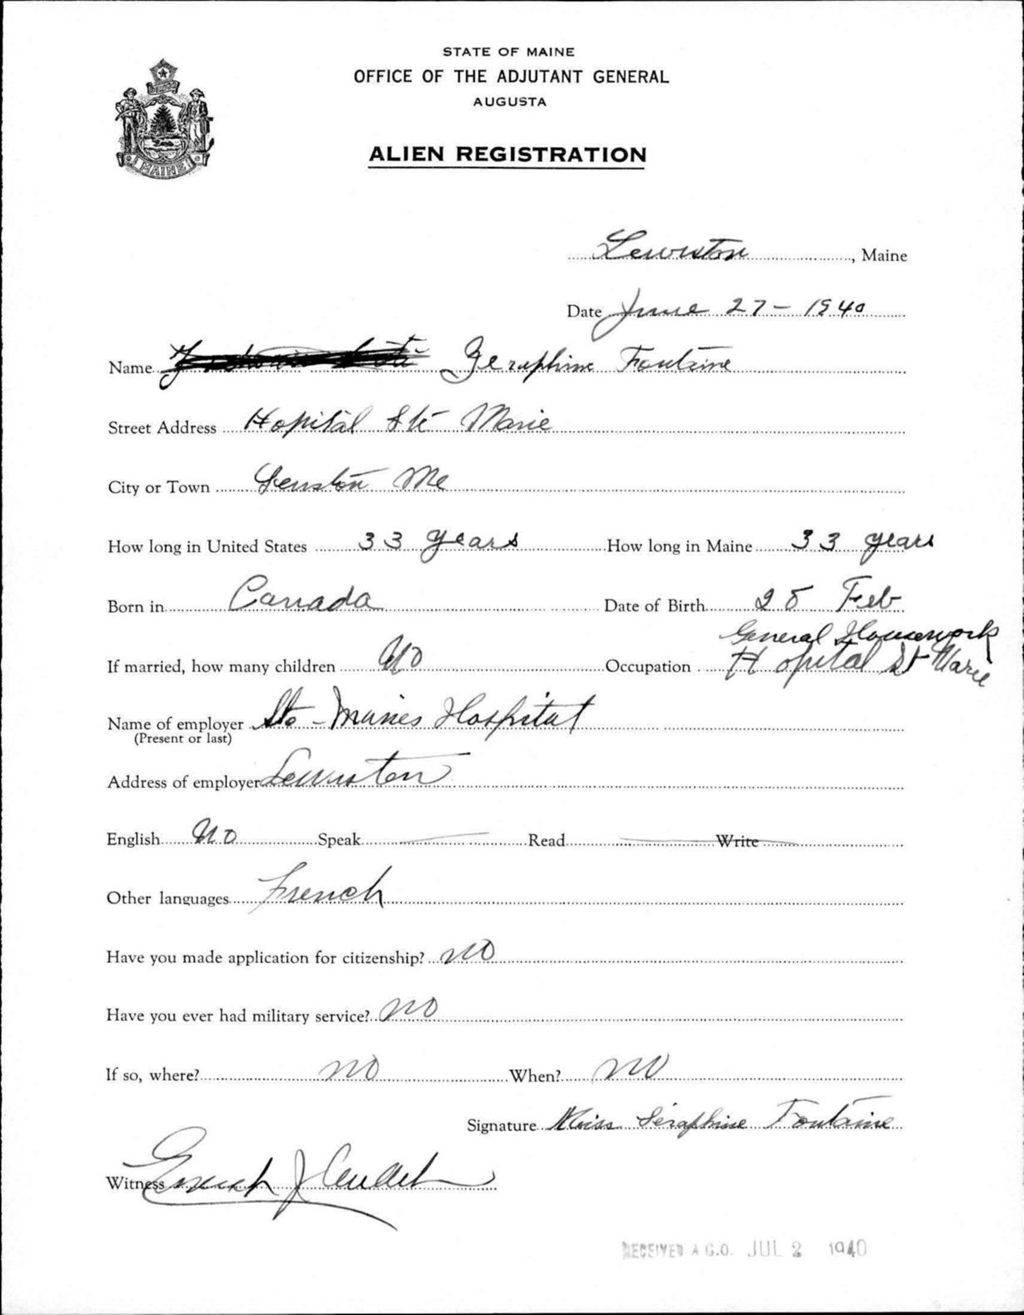 STATE OF MAINE
OFFICE OF THE ADJUTANT GENERAL
AUGUSTA
ALIEN REGISTRATION
MAINE
Lewiston, Maine
Date June 27 - 1940
Name Seraphine Fontaine
Street Address Hopital Ste Marie
City or Town Lewiston Me
How long in United States 33 years How long in Maine 33 years
Born in Canada Date of Birth 28 Feb
General Housework
If married, how many children No Occupation Hopital St Marie
Name of employer Ste - Maries Hospital
(Present or last)
Address of employer Lewiston
English No Speak Read Write
Other languages French
Have you made application for citizenship? no
Have you ever had military service? no
If so, where? no When? no
Signature Miss Séraphine Fontaine
Witness
RECEIVED A.G.O. JUL 2 1940